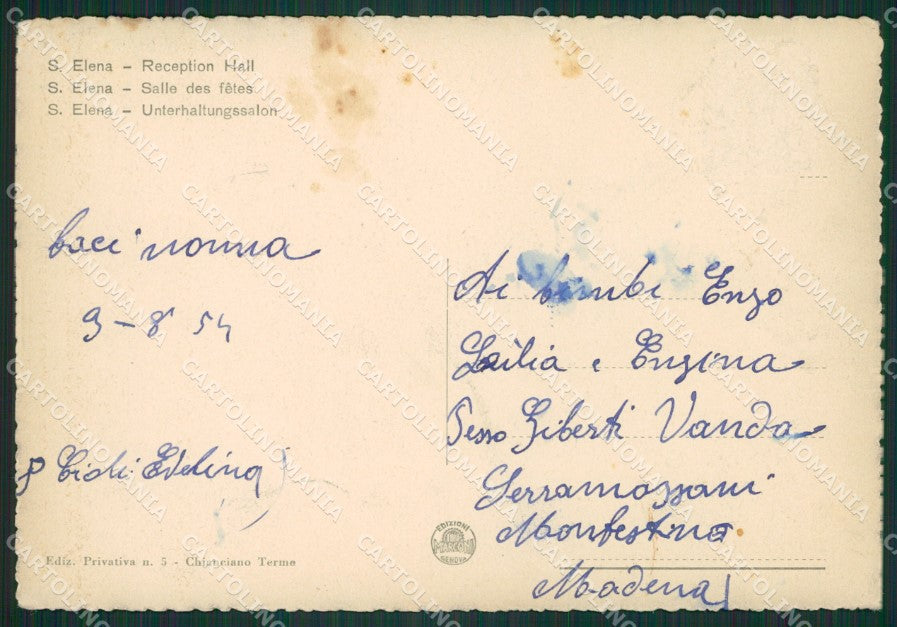 S. Elena – Reception Hall
S. Elena – Salle des fêtes
S. Elena – Unterhaltungssalon
baci nonna
9 – 8 54
Edelina
Ai bimbi Enzo
e Enzina
Giberti Vanda
Serramazzoni
Montestino
Modena
EDIZIONI
GENOVA
Ediz. Privativa n. 5 - Chianciano Terme
CARTOLINOMANIA